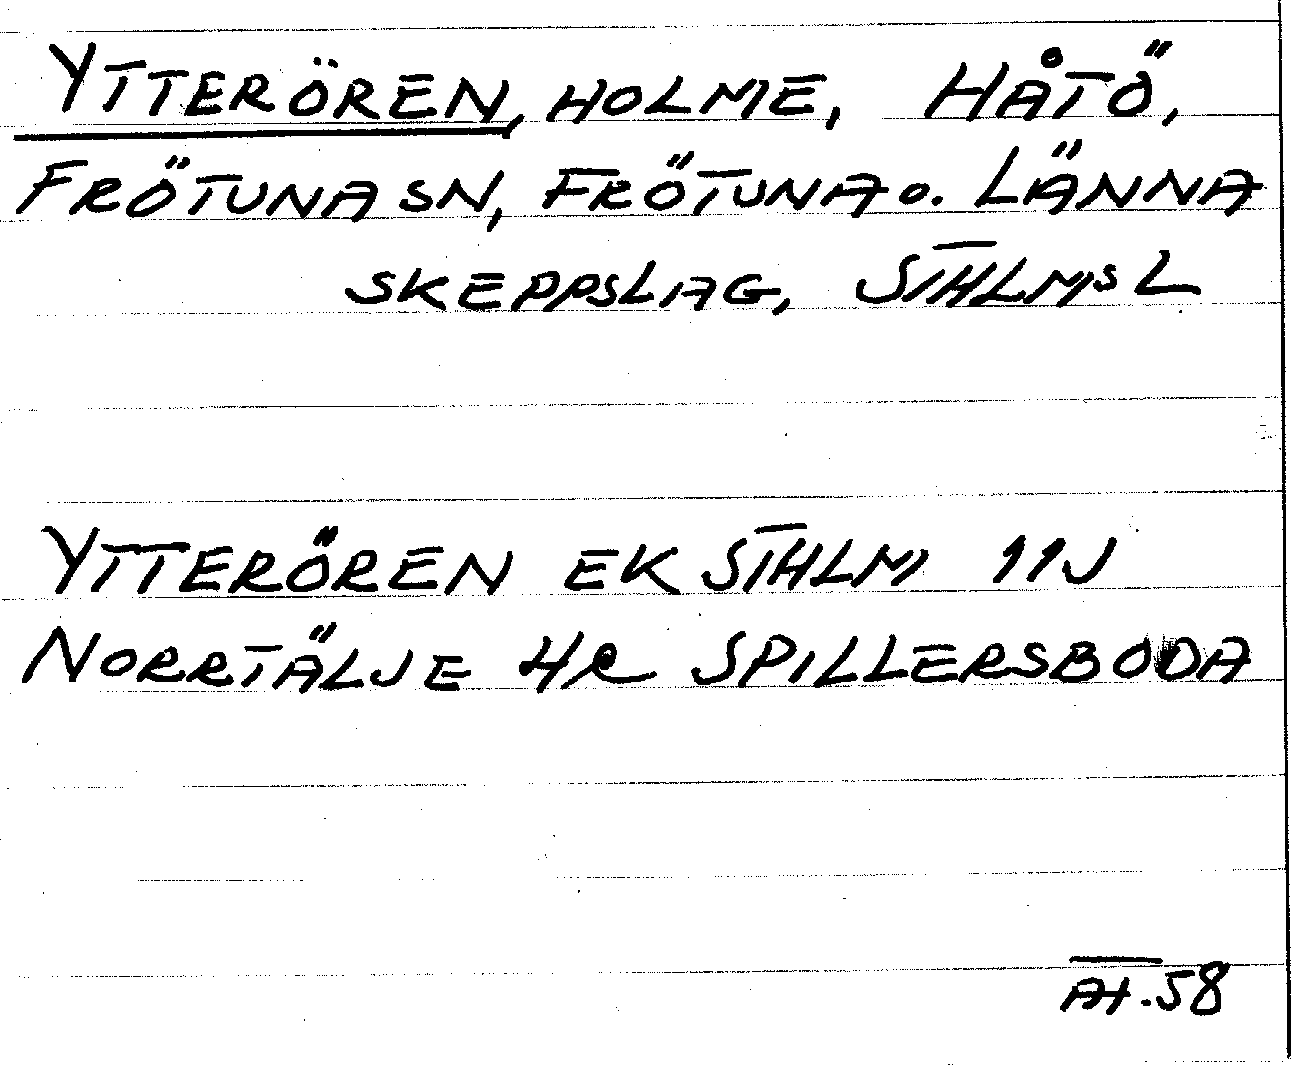 YTTERÖREN, HOLME, HÅTÖ,
FRÖTUNA SN, FRÖTUNA o. LÄNNA
SKEPPSLAG, STHLMS L
YTTERÖREN EK STHLM 11J
NORRTÄLJE 4R SPILLERSBODA
AT.58